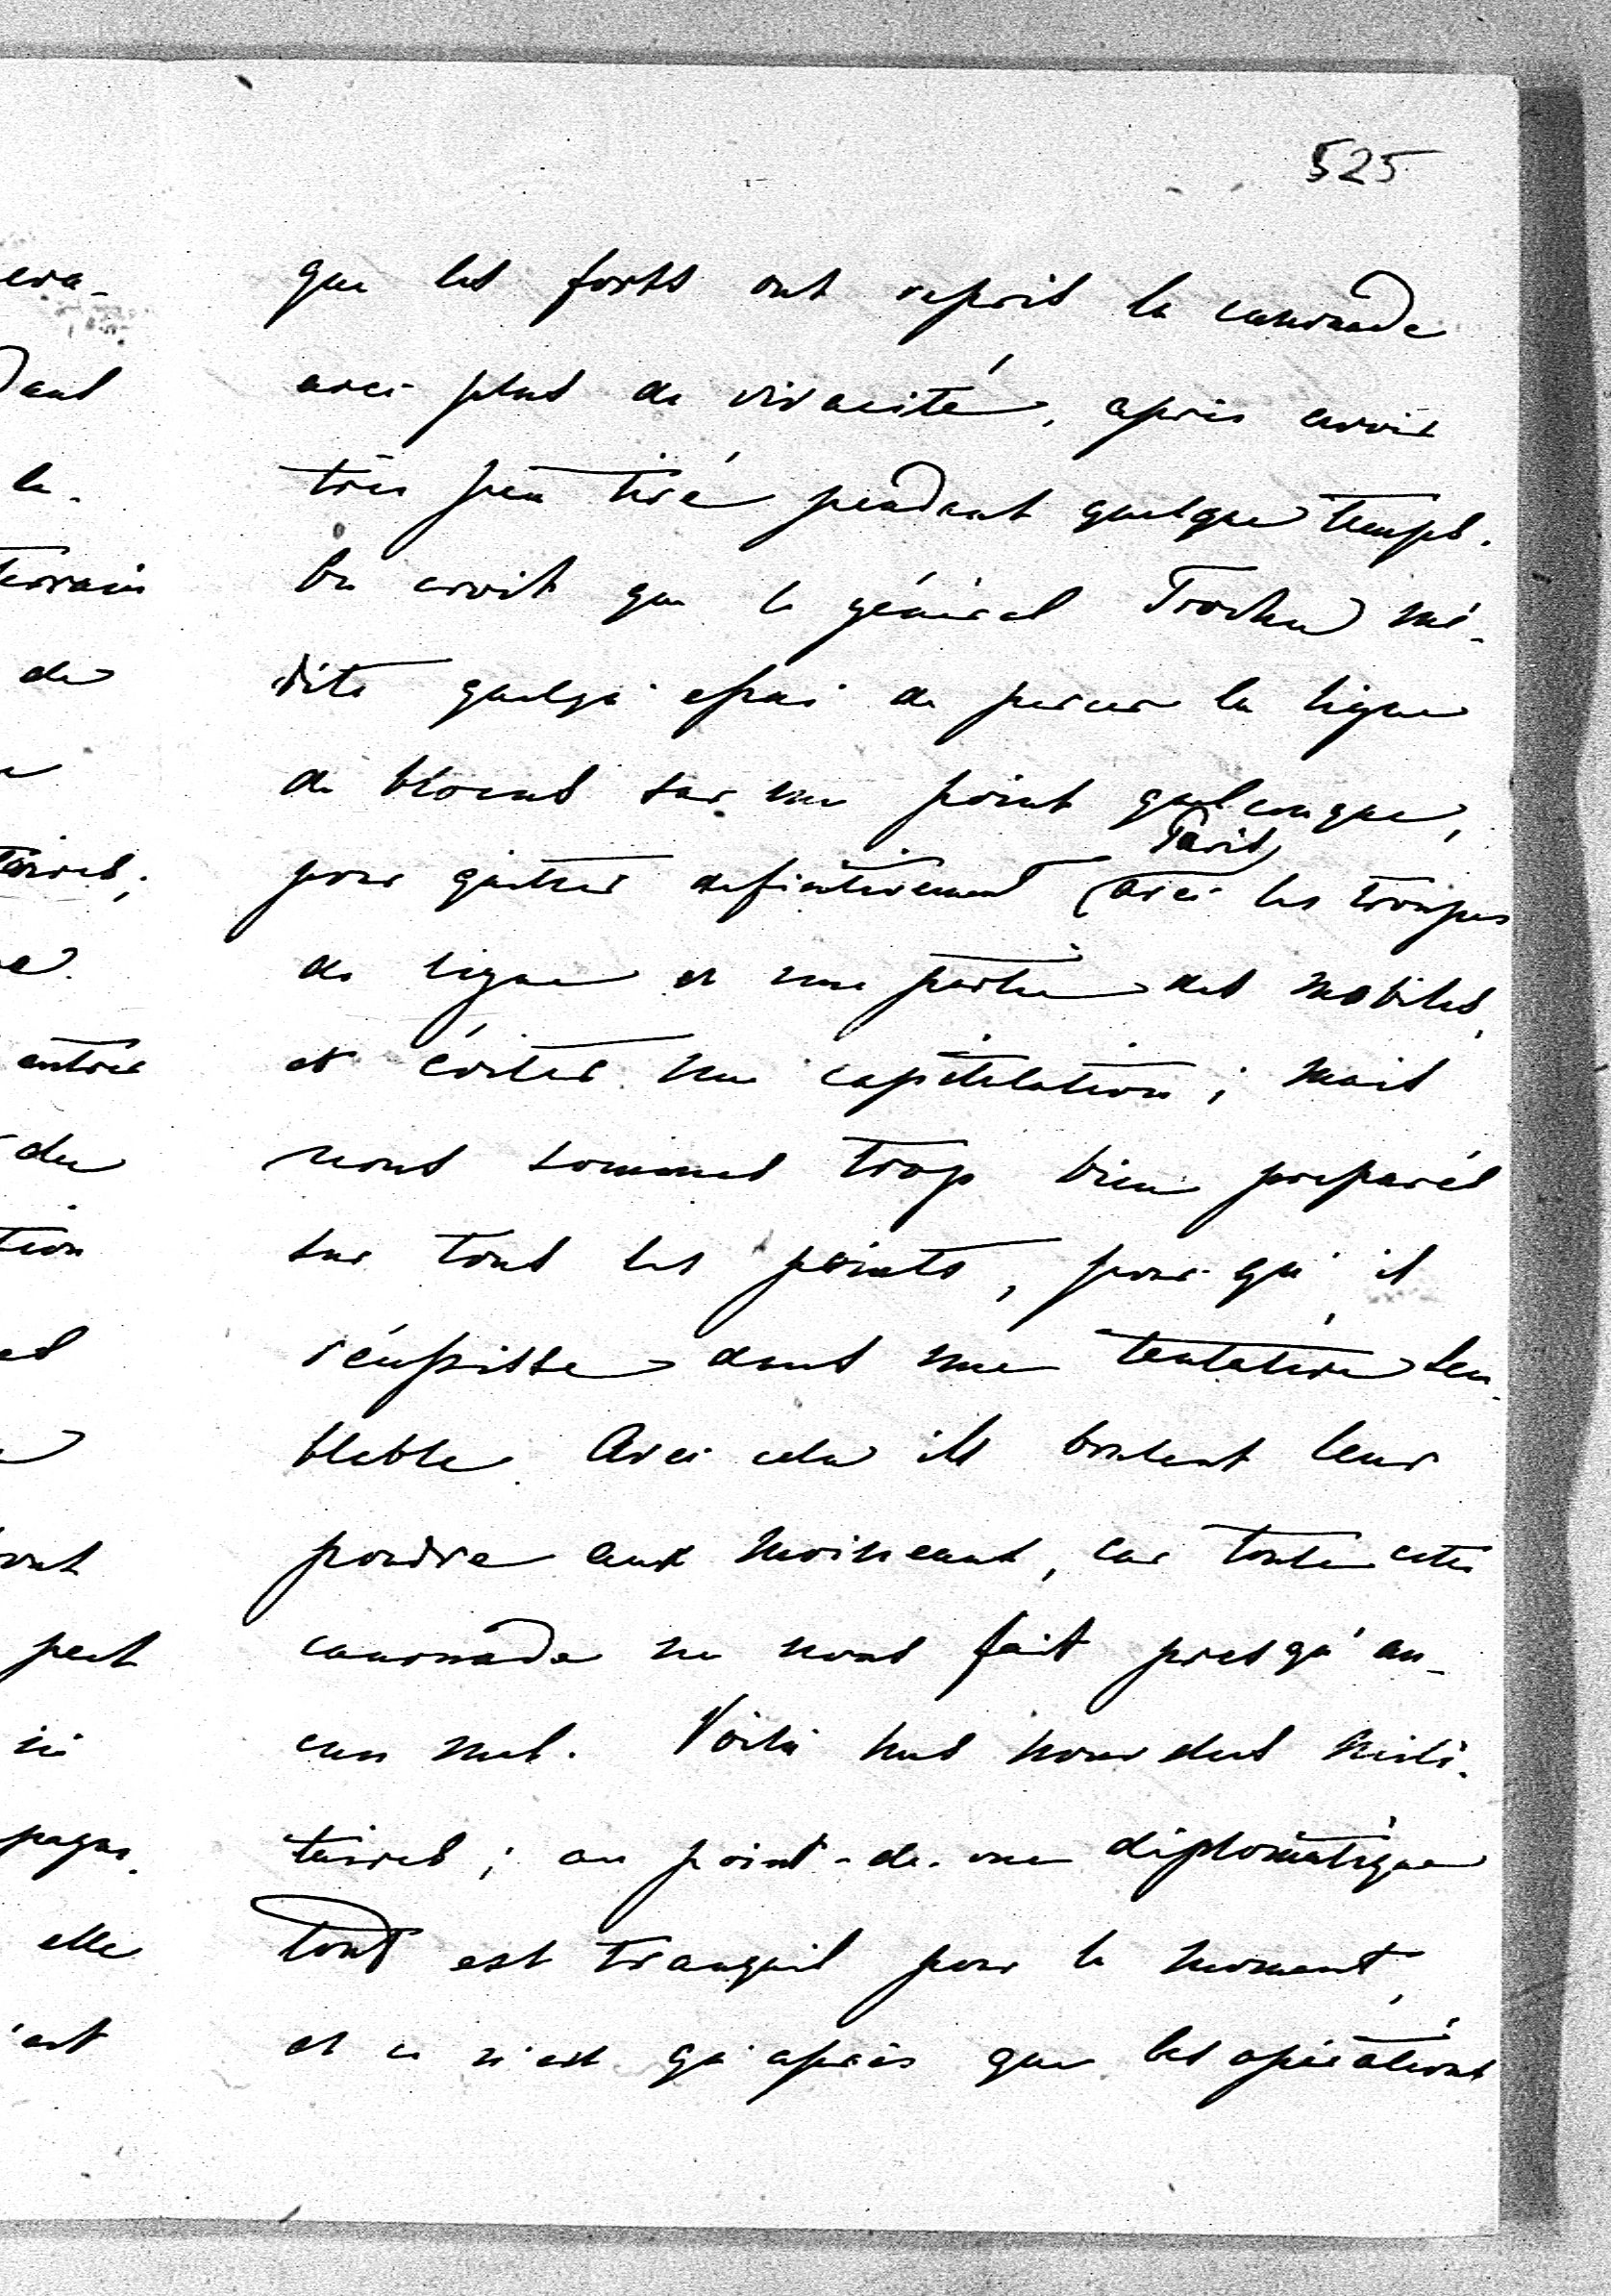 525
que les forts ont repris la canonade
avec plus de vivacité, après avoir
très peu tiré pendant quelque temps.
On croit que le général Trochu mé-
dite quelqu'essai de percer la ligne
de blocus sur un point quelconque,
Paris
pour quitter definitivement (avec les troupes
de ligne et une partie des mobiles,
et éviter une capitulation; mais
nous sommes trop bien preparés
sur tous les points, pour qu'il
réussisse dans une tentative sem-
blable. Avec cela ils brulent leur
poudre aux moineaux, car toute cette
canonnade ne nous fait presqu'au-
cun mal. Voilà nos nouvelles mili-
taires; au point-de-vue diplomatique
tout est tranquil pour le moment,
et ce n'est qu'après que les opérations
era-
dans
la
terrain
de
taires;
entrer
du
tion
peut
ni
pagne
elle
est